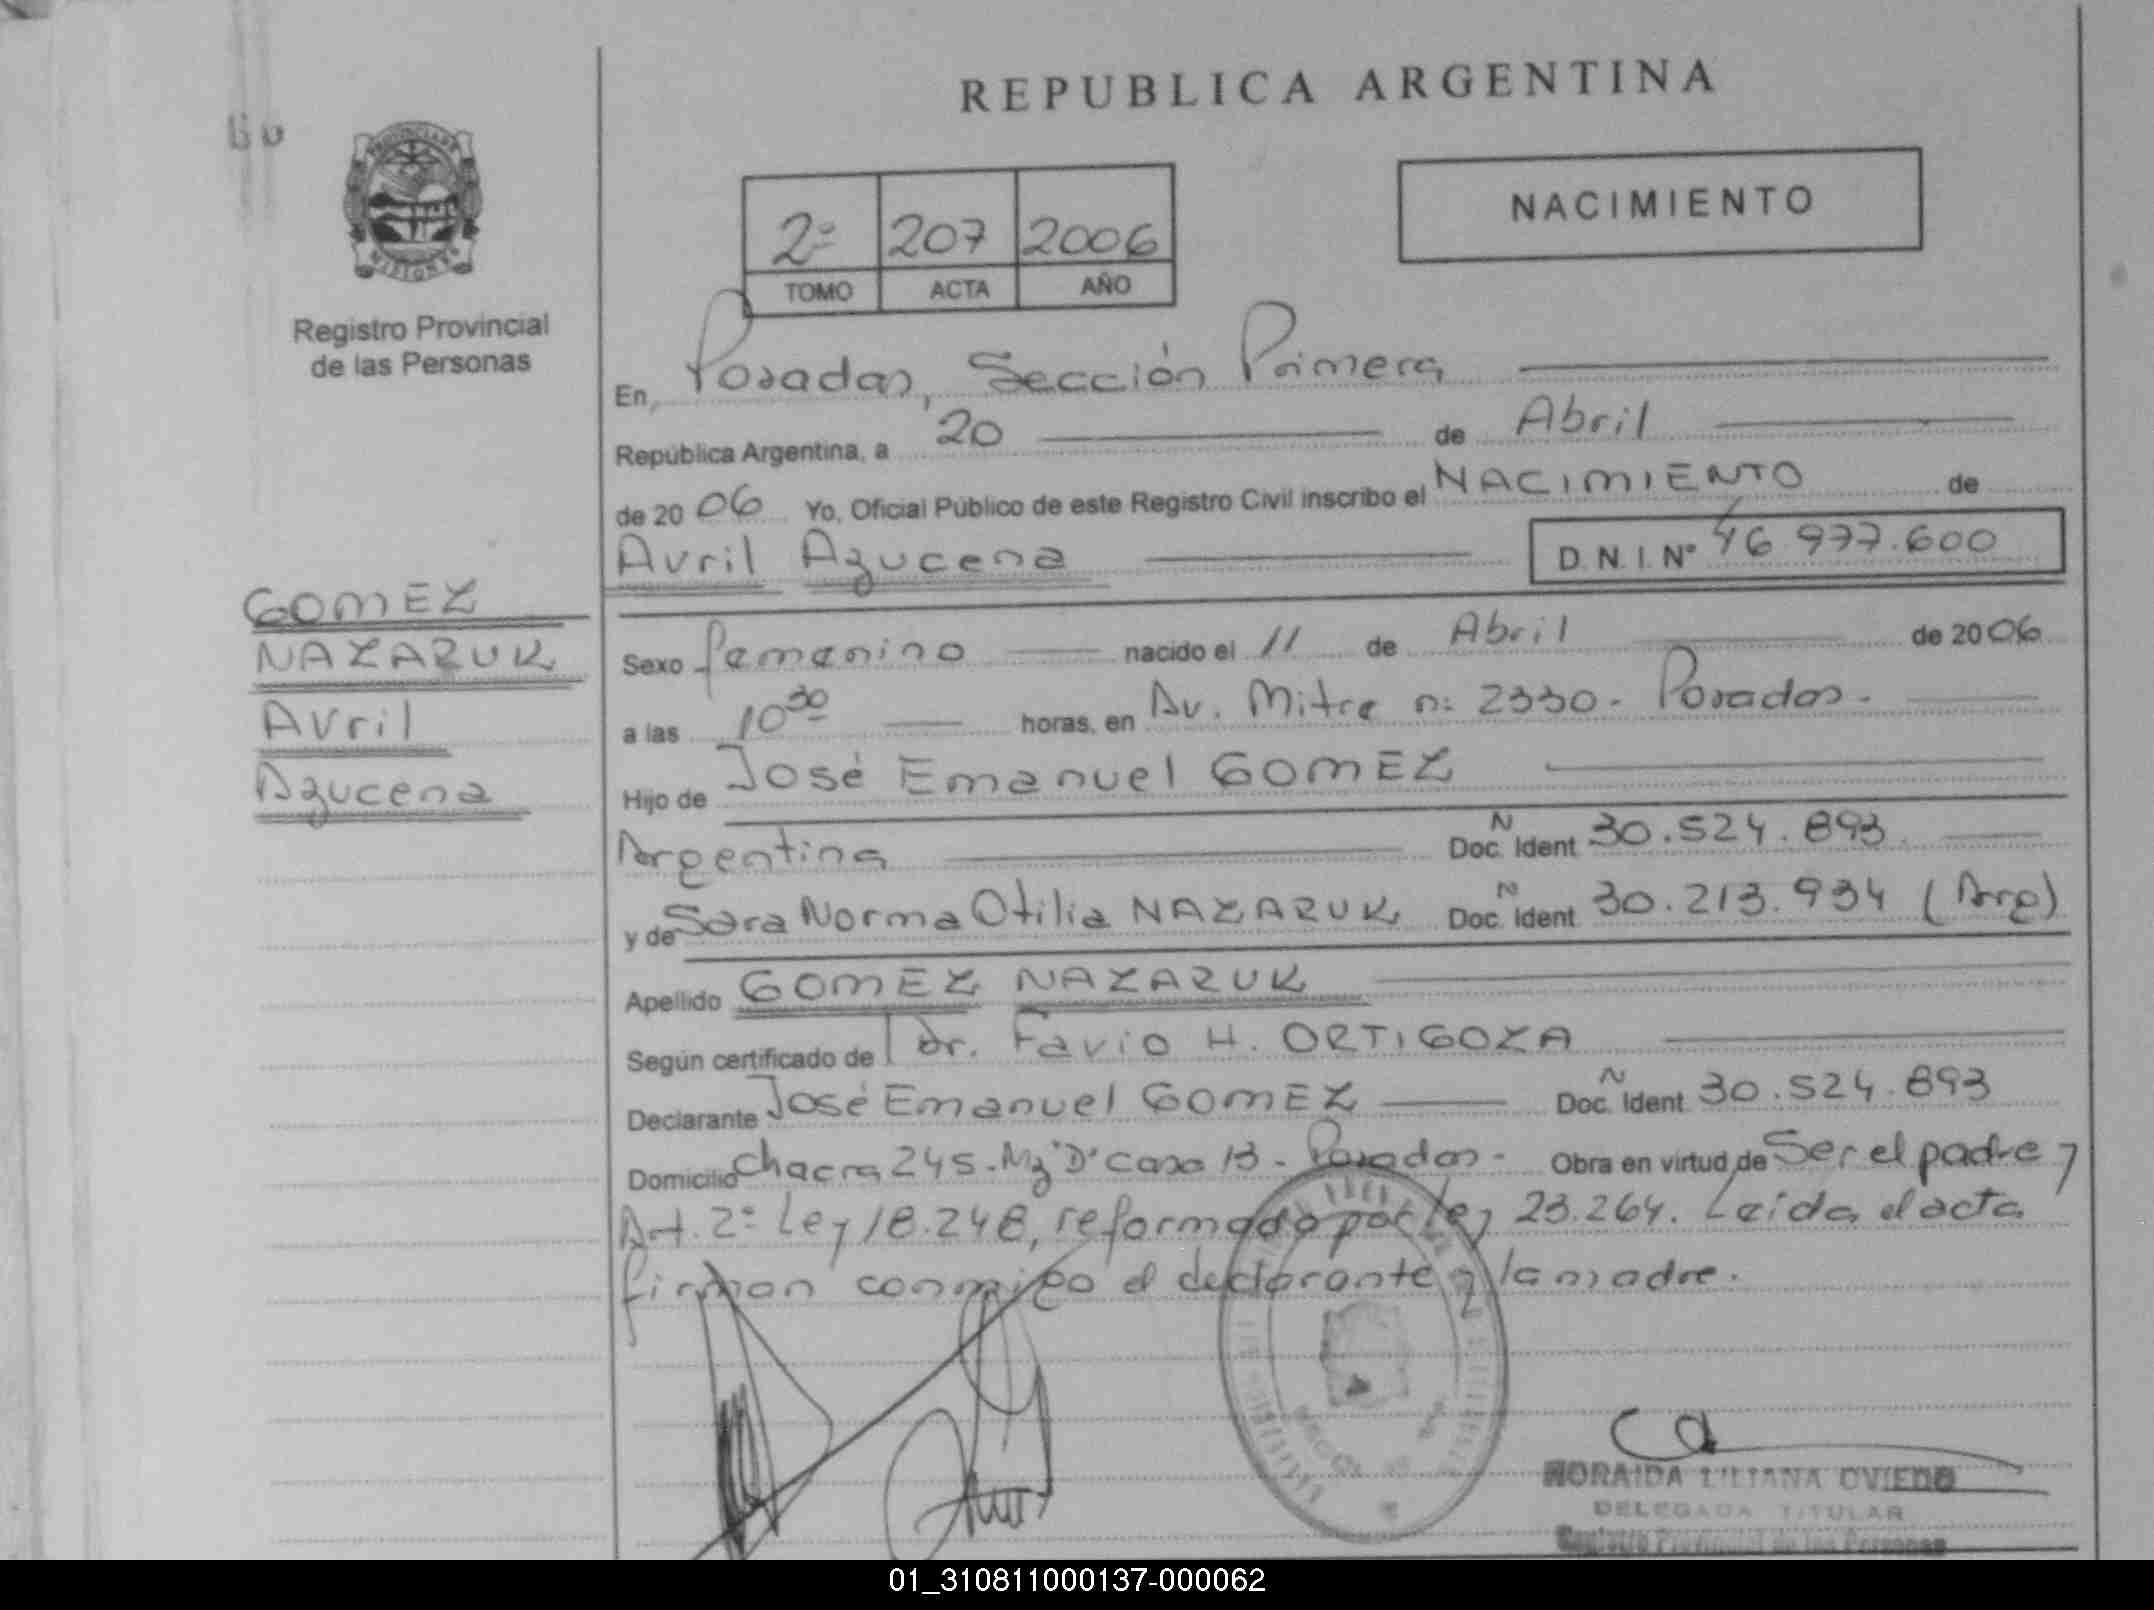 REPUBLICA ARGENTINA
PROVINCIA DE
MISIONES
Registro Provincial
de las Personas
2º 207 2006
TOMO ACTA AÑO
NACIMIENTO
En, Posadas, Sección Primera
República Argentina, a 20 de Abril
de 2006 Yo, Oficial Público de este Registro Civil inscribo el NACIMIENTO de
Avril Azucena D.N.I. Nº 46.977.600
GOMEZ
NAZARUK
Avril
Azucena
Sexo femenino nacido el 11 de Abril de 2006
a las 10 30 horas, en Av. Mitre nº 2330 - Posadas -
Hijo de José Emanuel GOMEZ
Argentina N Doc. Ident. 30.524.893
y de Sara Norma Otilia NAZARUK N Doc. Ident. 30.213.934 (Arg)
Apellido GOMEZ NAZARUK
Según certificado de Dr. Favio H. ORTIGOZA
Declarante José Emanuel GOMEZ N Doc. Ident. 30.524.893
Domicilio Chacra 245 - Mz "D" casa 13 - Posadas - Obra en virtud de Ser el padre y
Art. 2º Ley 18.248, reformado por ley 23.264. Leída el acta
firman conmigo el declarante y la madre.
LILIANA OVIEDO
DELEGADA TITULAR
Registro Provincial de las Personas
01_310811000137-000062